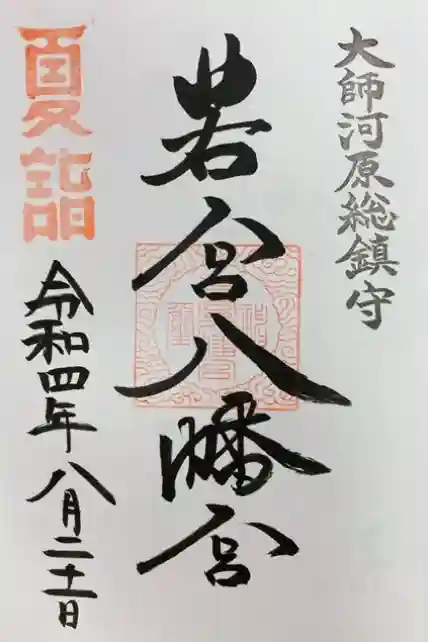 大師河原総鎮守
若宮八幡宮
夏詣
令和四年八月二十一日